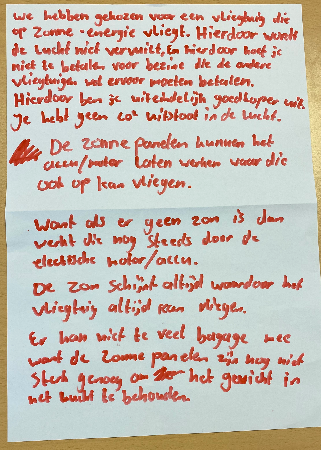 we hebben gekozen voor een vliegtuig die
op zonne-energie vliegt. Hierdoor wordt
de lucht niet vervuilt, En hierdoor hoef je
niet te betalen voor bezine die de andere
vliegtuigen wel ervoor moeten betalen.
Hierdoor ben je uiteindelijk goedkoper uit.
Je hebt geen co² uitstoot in de lucht.
De zonne panelen kunnen het
accu/motor laten werken waar die
ook op kan vliegen.
Want als er geen zon is dan
werkt die nog steeds door de
electische motor/accu.
De zon schijnt altijd waardoor het
vliegtuig altijd kan vliegen.
Er kan niet te veel bagage mee
want de zonne panelen zijn nog niet
sterk genoeg om het gewicht in
het lucht te behouden.